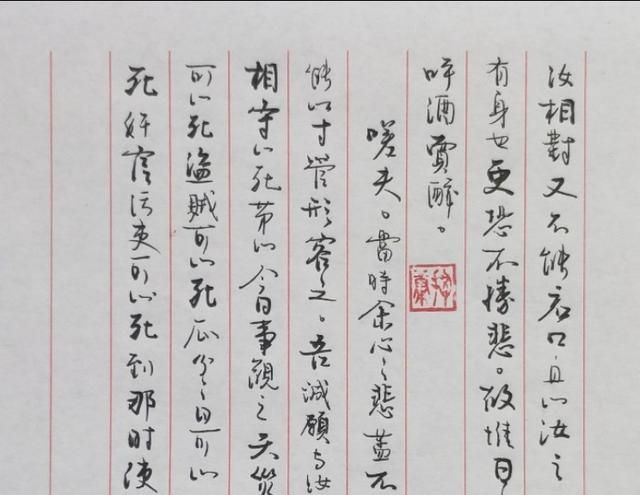 汝相對又不能启口且以汝之
有身也更恐不勝悲。故惟日
呼酒買醉。
嗟夫。當時余心之悲蓋不
能以寸管形容之。吾誠願与汝
相守以死苐以今日事觀之天災
可以死盜賊可以死瓜分之日可以
死奸官污吏可以死到那时使